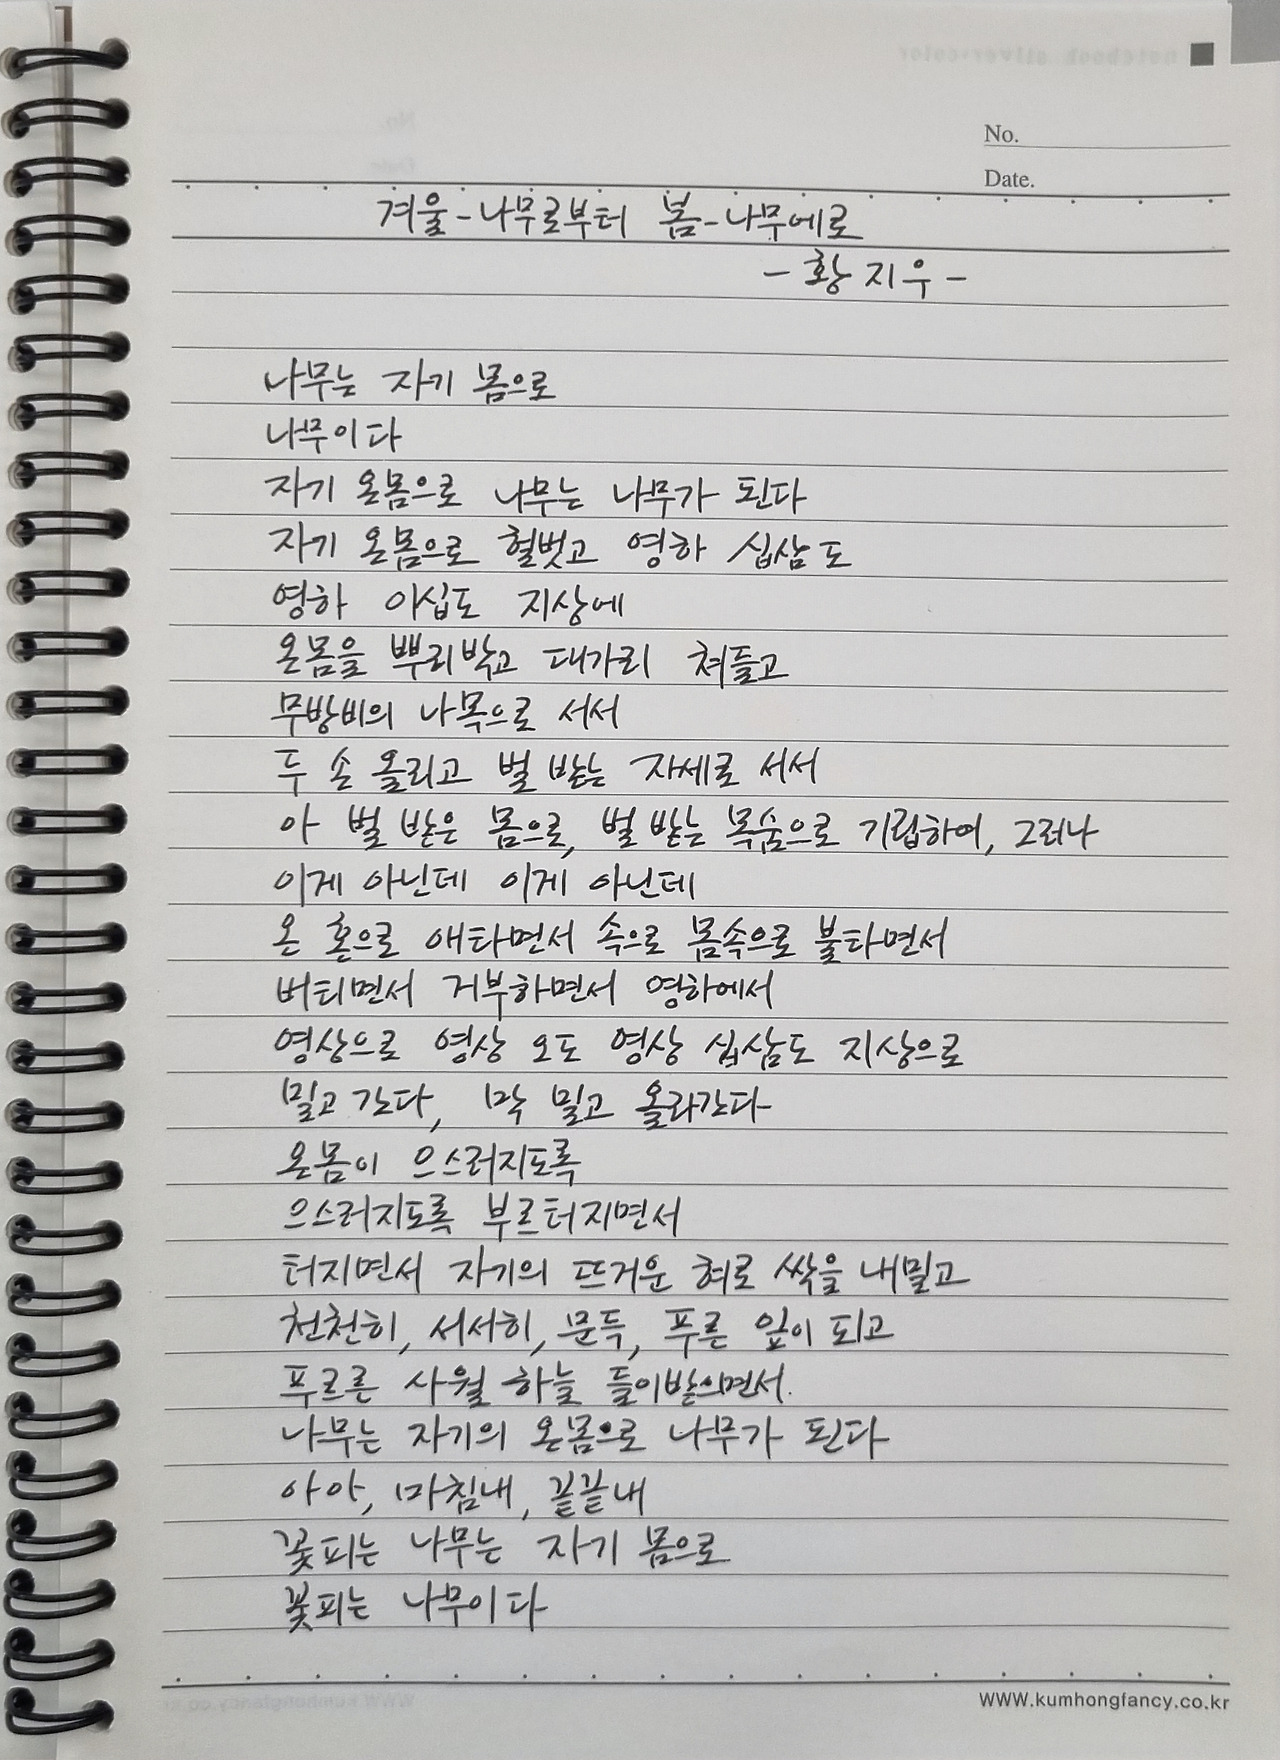 No.
Date.
겨울-나무로부터 봄-나무에로
- 황지우 -
나무는 자기 몸으로
나무이다
자기 온몸으로 나무는 나무가 된다
자기 온몸으로 헐벗고 영하 십삼도
영하 이십도 지상에
온몸을 뿌리박고 대가리 쳐들고
무방비의 나목으로 서서
두 손 올리고 벌 받는 자세로 서서
아 벌 받은 몸으로, 벌 받는 목숨으로 기립하여, 그러나
이게 아닌데 이게 아닌데
온 혼으로 애타면서 속으로 몸속으로 불타면서
버티면서 거부하면서 영하에서
영상으로 영상 오도 영상 십삼도 지상으로
밀고 간다, 막 밀고 올라간다
온몸이 으스러지도록
으스러지도록 부르터지면서
터지면서 자기의 뜨거운 혀로 싹을 내밀고
천천히, 서서히, 문득, 푸른 잎이 되고
푸르른 사월 하늘 들이받으면서.
나무는 자기의 온몸으로 나무가 된다
아아, 마침내, 끝끝내
꽃피는 나무는 자기 몸으로
꽃피는 나무이다
WWW.kumhongfancy.co.kr